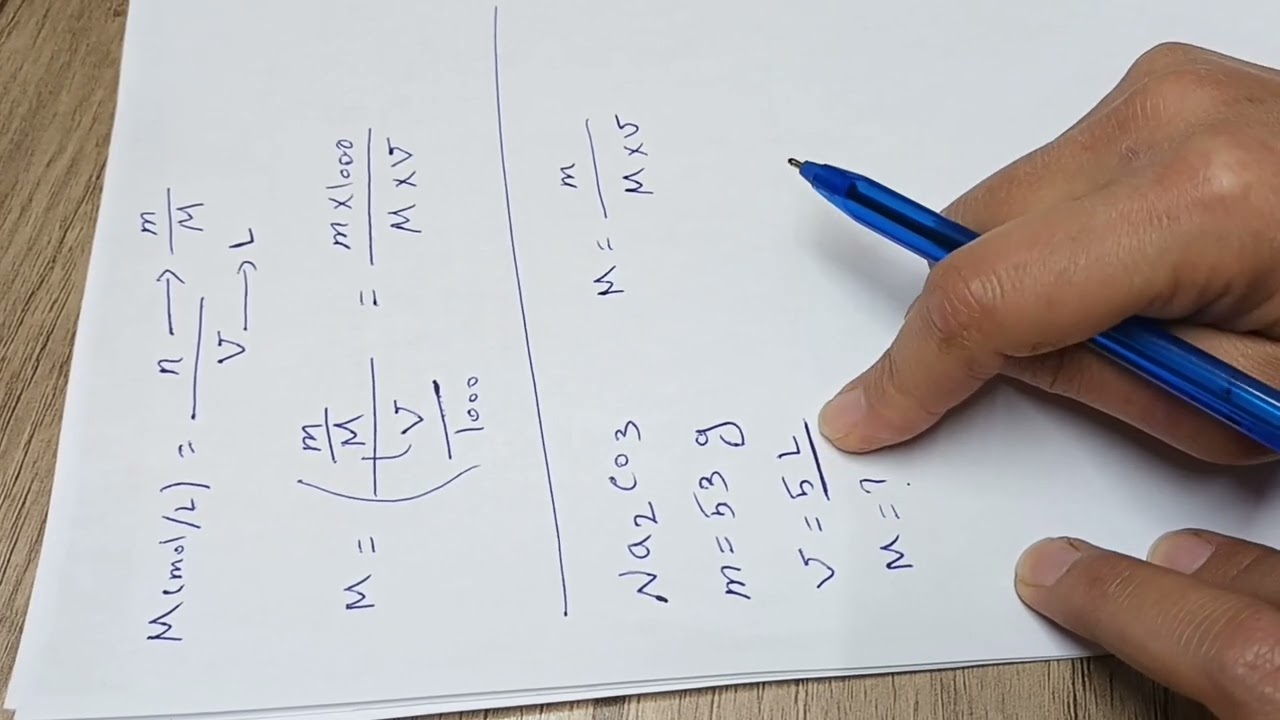 M(mol/L) = n → m/M / V → L
M = (m/M / V/1000) = m×1000 / M×V
Na2CO3
m = 53 g
V = 5L
M = ?
M = m / M×V